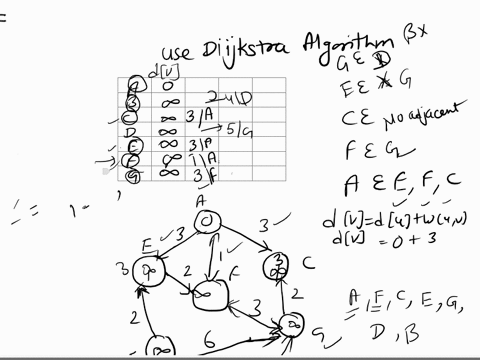 use Dijkstra Algorithm
d[v]
A 0
B ∞ 24/D
C ∞ 3/A
D ∞ 5/G
E ∞ 3/A
F ∞ 1/A
G ∞ 3/F
Bx
G ε D
E ε G
C ε no adjacent
F ε G
A ε E, F, C
d[v]=d[u]+w(u,v)
d[v] = 0 + 3
A, F, C, E, G,
D, B
A
0
3
3
1
E
3
∞
2
F
∞
3
∞
C
2
2
3
∞
G
6
∞